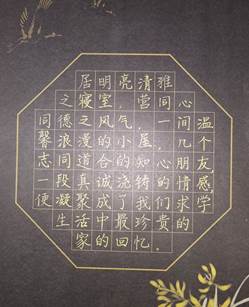 居明亮清雅
之寝室，营同心
同德之风气，一间温
馨浪漫的小屋，几个
志同道合的知心朋友，
一段真诚浇铸的情感，
便凝聚成了我们求学
生活中最珍贵的
家的回忆.